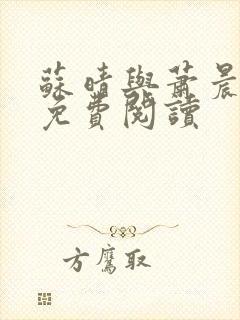 蘇晴與蕭晨
免費閱讀
方鷹取